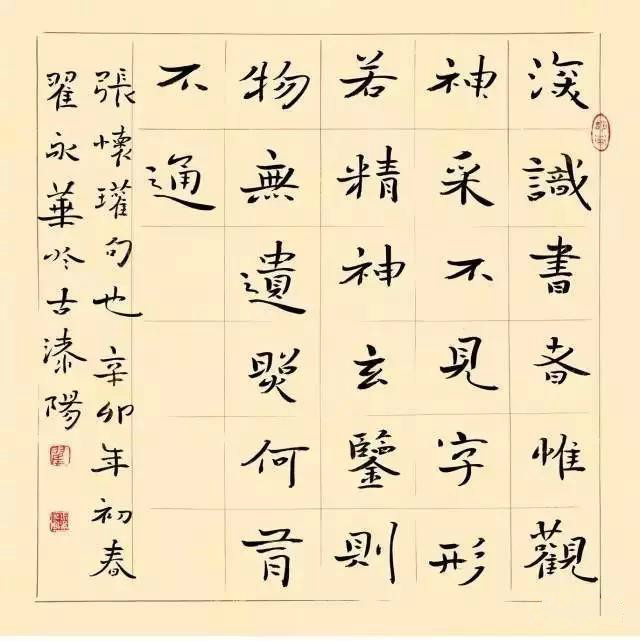 深識書者惟觀
神采不見字形
若精神玄鑒則
物無遺照何有
不通
張懷瓘句也辛卯年初春
翟永華於古陽